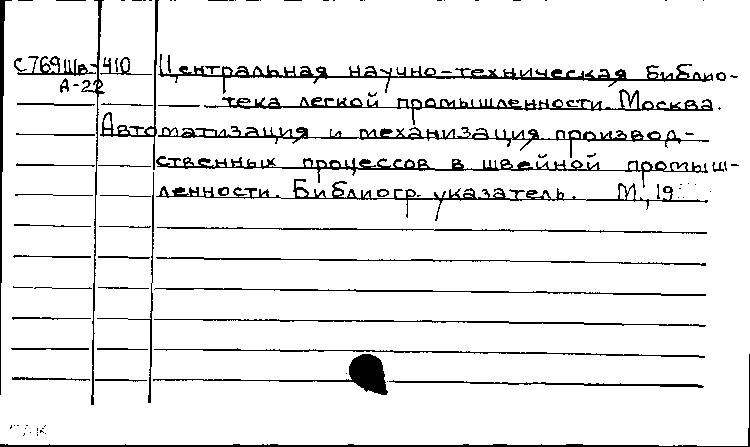 С769Шв-410 Центральная научно-техническая библио-
А-22 тека легкой промышленности. Москва.
Автоматизация и механизация производ-
ственных процессов в швейной промыш-
ленности. Библиогр. указатель. М., 19